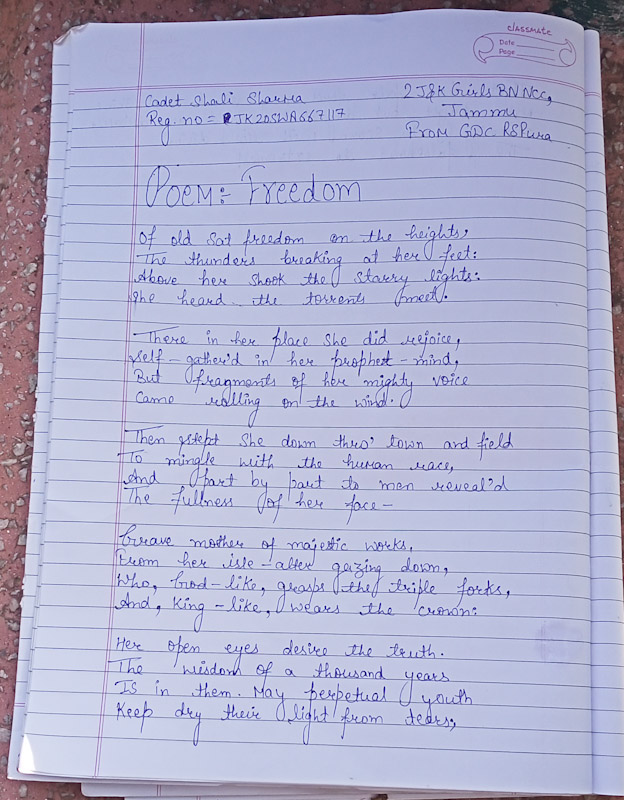 classmate
Date
Page
Cadet Shali Sharma
2 J&K Girls BN NCC,
Reg. no = JK20SWA667117
Jammu
From GDC RSPura
Poem:- Freedom
Of old sat freedom on the heights,
The thunders breaking at her feet:
Above her shook the starry lights:
She heard the torrents meet.
There in her place she did rejoice,
Self-gather'd in her prophet-mind,
But fragments of her mighty voice
Came rolling on the wind.
Then stept she down thro' town and field
To mingle with the human race,
And part by part to men reveal'd
The fullness of her face-
Grave mother of majestic works,
From her isle-alter gazing down,
Who, God-like, grasps the triple forks,
And, King-like, wears the crown:
Her open eyes desire the truth.
The wisdom of a thousand years
Is in them. May perpetual youth
Keep dry their light from tears;